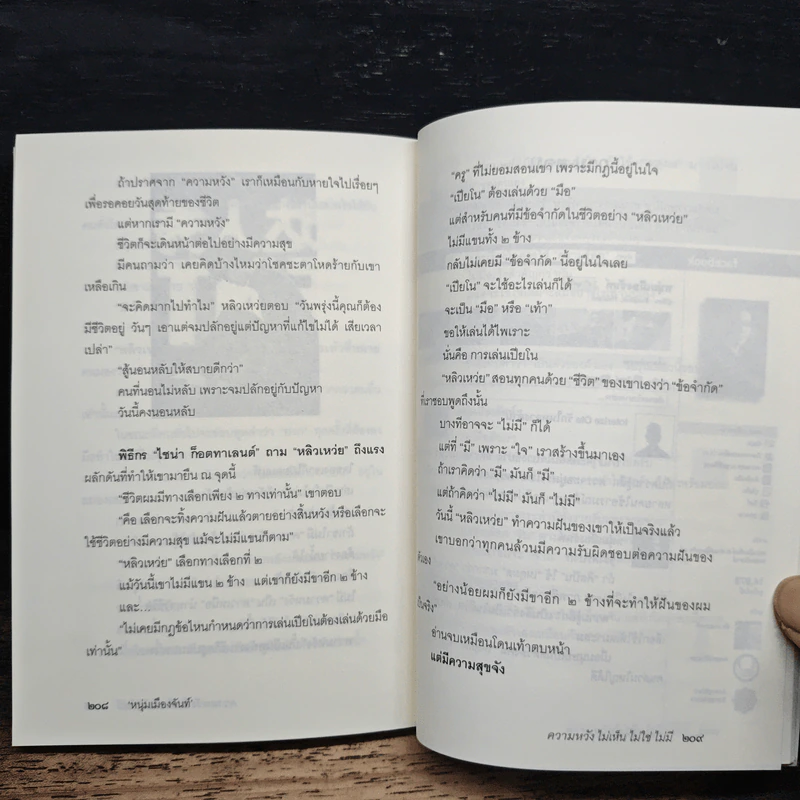 ถ้าปราศจาก "ความหวัง" เราก็เหมือนกับหายใจไปเรื่อยๆ
เพื่อรอคอยวันสุดท้ายของชีวิต
แต่หากเรามี "ความหวัง"
ชีวิตก็จะเดินหน้าต่อไปอย่างมีความสุข
มีคนถามว่า เคยคิดบ้างไหมว่าโชคชะตาโหดร้ายกับเขา
เหลือเกิน
"จะคิดมากไปทำไม" หลิวเหว่ยตอบ "วันพรุ่งนี้คุณก็ต้อง
มีชีวิตอยู่ วันๆ เอาแต่จมปลักอยู่แต่ปัญหาที่แก้ไขไม่ได้ เสียเวลา
เปล่า"
"สู้นอนหลับให้สบายดีกว่า"
คนที่นอนไม่หลับ เพราะจมปลักอยู่กับปัญหา
วันนี้คงนอนหลับ
พิธีกร "ไชน่า ก็อตทาเลนต์" ถาม "หลิวเหว่ย" ถึงแรง
ผลักดันที่ทำให้เขามายืน ณ จุดนี้
"ชีวิตผมมีทางเลือกเพียง ๒ ทางเท่านั้น" เขาตอบ
"คือ เลือกจะทิ้งความฝันแล้วตายอย่างสิ้นหวัง หรือเลือกจะ
ใช้ชีวิตอย่างมีความสุข แม้จะไม่มีแขนก็ตาม"
"หลิวเหว่ย" เลือกทางเลือกที่ ๒
แม้วันนี้เขาไม่มีแขน ๒ ข้าง แต่เขาก็ยังมีขาอีก ๒ ข้าง
และ...
"ไม่เคยมีกฎข้อไหนกำหนดว่าการเล่นเปียโนต้องเล่นด้วยมือ
เท่านั้น"
๒๐๘ 'หนุ่มเมืองจันท์'
"ครู" ที่ไม่ยอมสอนเขา เพราะมีกฎนี้อยู่ในใจ
"เปียโน" ต้องเล่นด้วย "มือ"
แต่สำหรับคนที่มีข้อจำกัดในชีวิตอย่าง "หลิวเหว่ย"
ไม่มีแขนทั้ง ๒ ข้าง
กลับไม่เคยมี "ข้อจำกัด" นี้อยู่ในใจเลย
"เปียโน" จะใช้อะไรเล่นก็ได้
จะเป็น "มือ" หรือ "เท้า"
ขอให้เล่นได้ไพเราะ
นั่นคือ การเล่นเปียโน
"หลิวเหว่ย" สอนทุกคนด้วย "ชีวิต" ของเขาเองว่า "ข้อจำกัด"
ที่เราชอบพูดถึงนั้น
บางทีอาจจะ "ไม่มี" ก็ได้
แต่ที่ "มี" เพราะ "ใจ" เราสร้างขึ้นมาเอง
ถ้าเราคิดว่า "มี" มันก็ "มี"
แต่ถ้าคิดว่า "ไม่มี" มันก็ "ไม่มี"
วันนี้ "หลิวเหว่ย" ทำความฝันของเขาให้เป็นจริงแล้ว
เขาบอกว่าทุกคนล้วนมีความรับผิดชอบต่อความฝันของ
ตัวเอง
"อย่างน้อยผมก็ยังมีขาอีก ๒ ข้างที่จะทำให้ฝันของผม
เป็นจริง"
อ่านจบเหมือนโดนเท้าตบหน้า
แต่มีความสุขจัง
ความหวัง ไม่เห็น ไม่ใช่ ไม่มี ๒๐๙